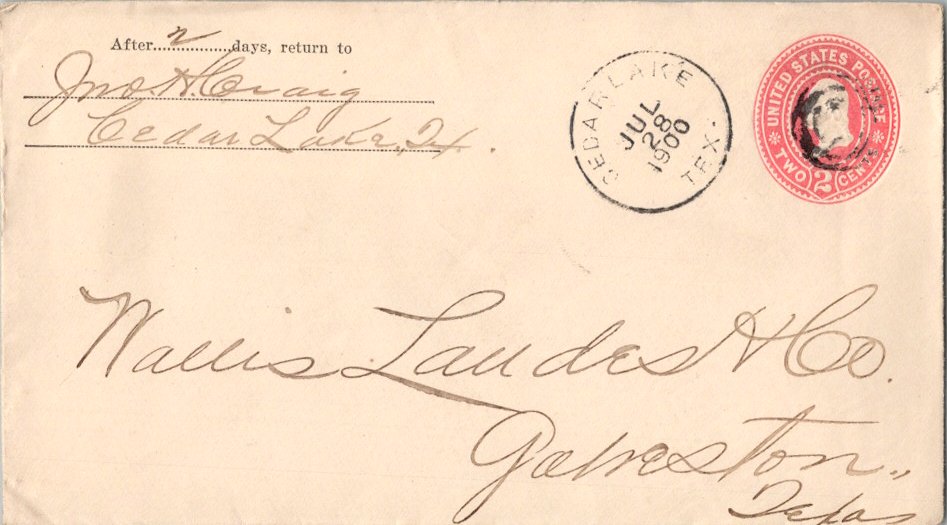 After 2 days, return to
Jno H Craig
Cedar Lake, Tx.
CEDAR LAKE
JUL
28
1900
TEX.
UNITED STATES POSTAGE
TWO 2 CENTS
Wallis Landes & Co.
Galveston,,
Texas